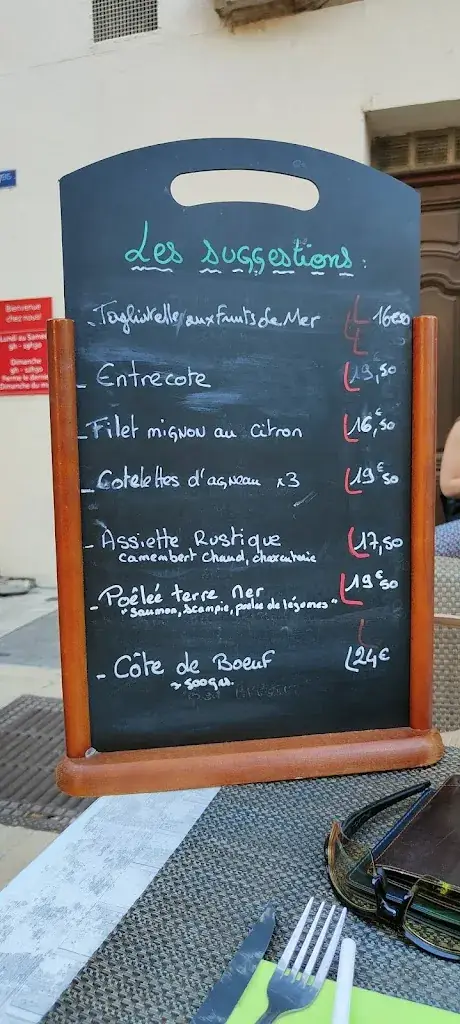 Les suggestions :
- Tagliatelle aux fruits de Mer 16€50
- Entrecote 19,50
- Filet mignon au Citron 16,€50
- Cotelettes d'agneau x3 19€50
- Assiette Rustique 17,50
camembert chaud, charcuterie
- Poêlée terre Mer 19€50
"saumon, scampis, poêlée de légumes"
- Côte de Boeuf 24€
500grs.
Bienvenue
chez nous!
Lundi au Samedi
9h - 19h30
Dimanche